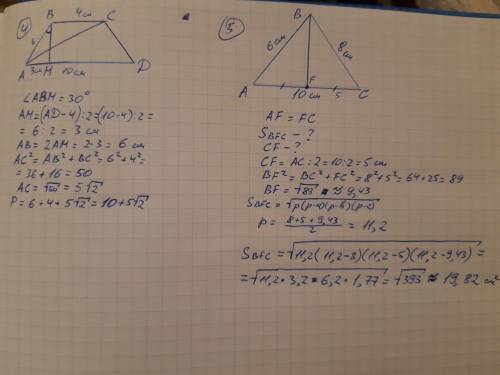 4
B 4см C
6
A 3см M 10см D
∠ABM = 30°
AM = (AD-4):2 = (10-4):2 =
= 6:2 = 3 см
AB = 2AM = 2·3 = 6 см
AC² = AB² + BC² = 6² + 4² =
= 36 + 16 = 50
AC = √50 = 5√2
P = 6 + 4 + 5√2 = 10 + 5√2
5
B
6см 8см
A F C
10см 5
AF = FC
S_BFC - ?
CF - ?
CF = AC : 2 = 10 : 2 = 5 см
BF² = BC² + FC² = 8² + 5² = 64 + 25 = 89
BF = √89 ≈ 9,43
S_BFC = √p(p-a)(p-b)(p-c)
p = (8+5+9,43)/2 = 11,2
S_BFC = √11,2(11,2-8)(11,2-5)(11,2-9,43) =
= √11,2·3,2·6,2·1,77 = √393 ≈ 19,82 см²